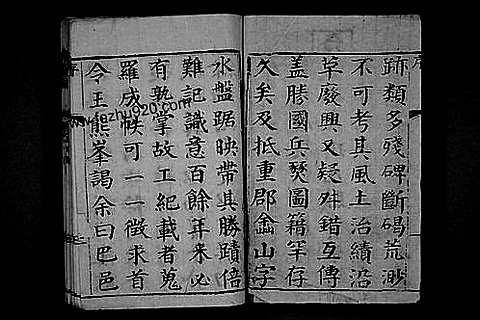 序
跡類多殘碑斷碣荒渺
不可考其風土治績沿
革廢興又疑舛錯互傳
蓋勝國兵燹圖籍罕存
久矣及抵重郡崟山字
水盤踞映帶其勝蹟倍
難記識意百餘年來必
有孰掌故工紀載者蒐
羅成帙可一一徵求首
令王熊峯謁余曰巴邑